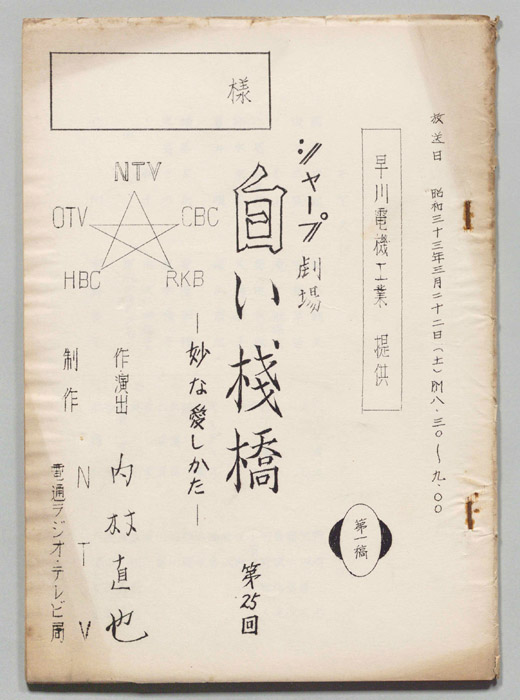 放送日 昭和三十三年三月二十二日(土)PM八・三〇〜九・〇〇
早川電機工業 提供
第一稿
シャープ劇場
白い桟橋
第25回
―妙な愛しかた―
様
NTV
OTV
CBC
HBC
RKB
作演出 内村直也
制作 NTV
電通ラジオ・テレビ局